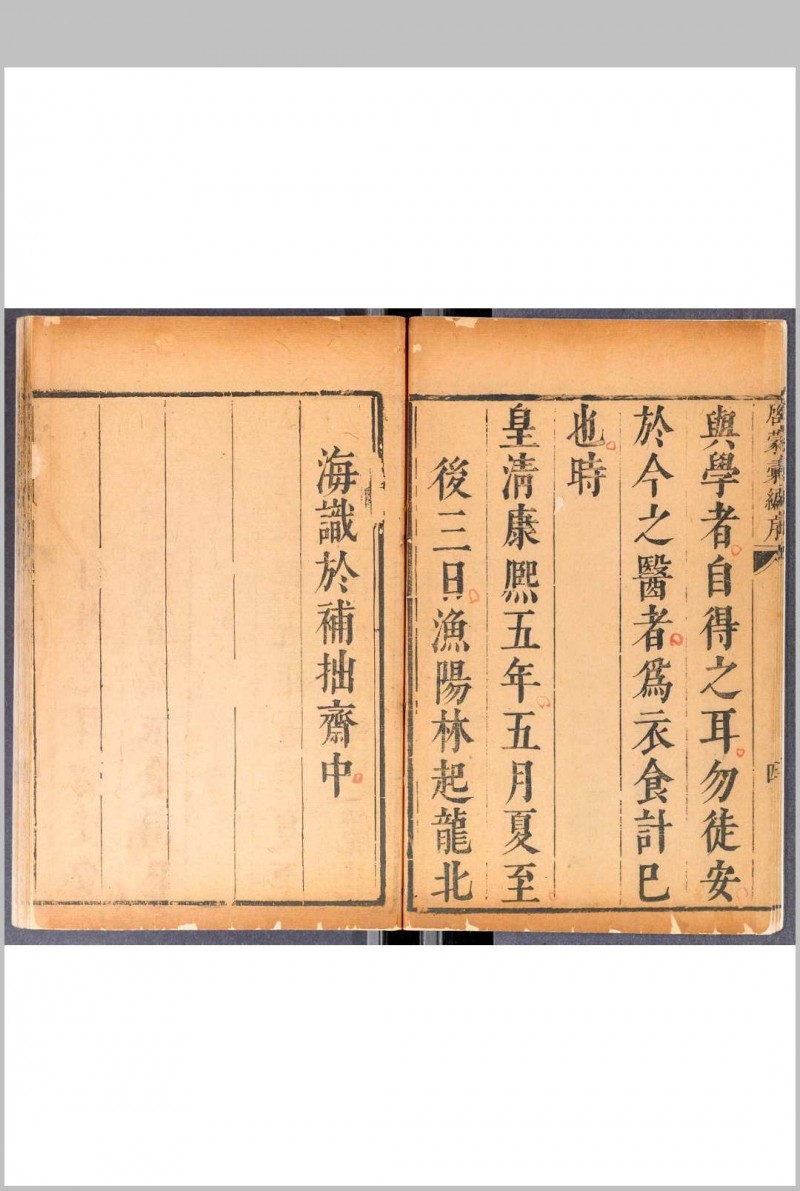 啓蒙彙編序
四
與學者自得之耳勿徒安
於今之醫者爲衣食計巳
也時
皇清康熈五年五月夏至
後三日漁陽林起龍北
海識於補拙齋中